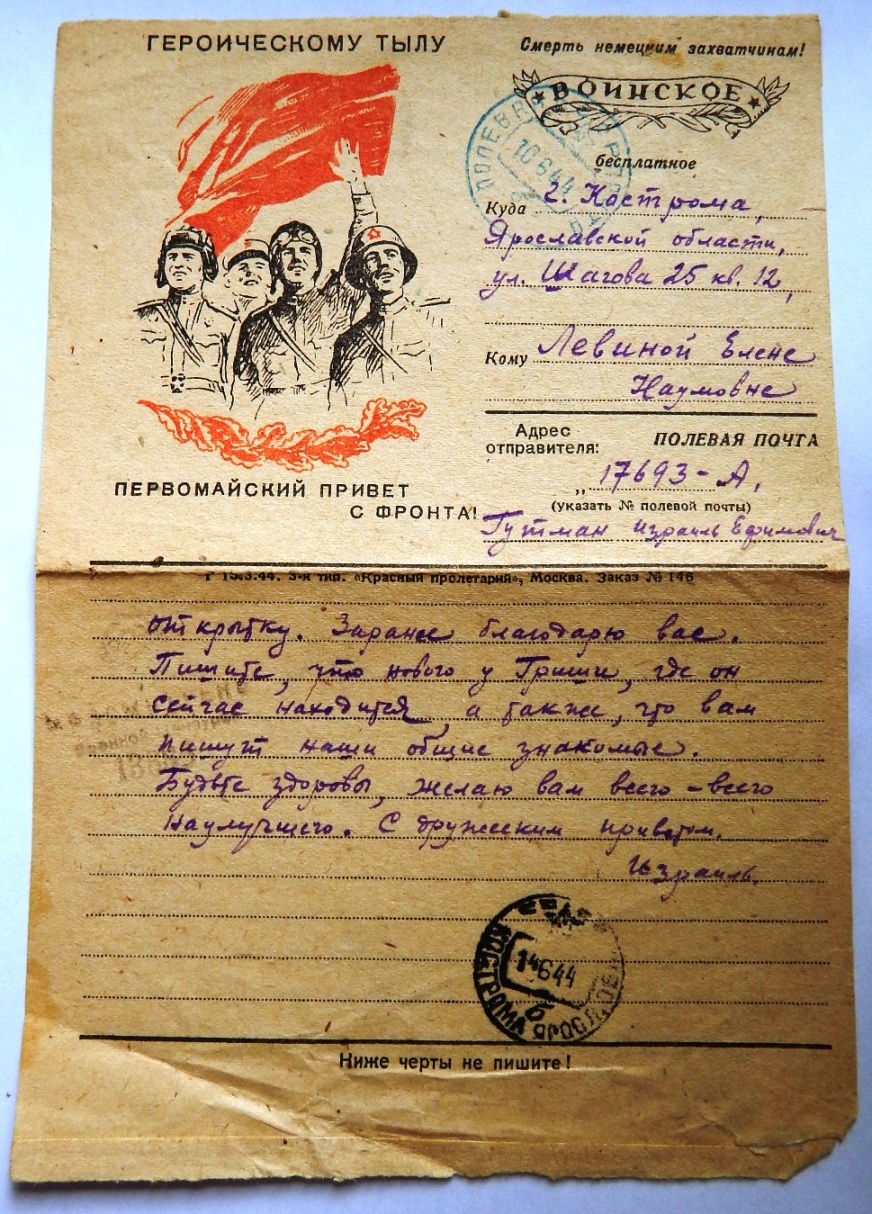 ГЕРОИЧЕСКОМУ ТЫЛУ
ПЕРВОМАЙСКИЙ ПРИВЕТ
С ФРОНТА!
Смерть немецким захватчикам!
ВОИНСКОЕ
бесплатное
10 6 44
Куда г. Кострома,
Ярославской области,
ул. Шагова 25 кв. 12,
Кому Левиной Елене
Наумовне
Адрес отправителя: ПОЛЕВАЯ ПОЧТА
„17693-А,
(указать № полевой почты)
Гутман Израиль Ефимович
Г 15.3.44. 3-я тип. «Красный пролетарий», Москва. Заказ № 146
открытку. Заранее благодарю вас.
Пишите, что нового у Гриши, где он
сейчас находится, а также, что вам
пишут наши общие знакомые.
Будьте здоровы, желаю вам всего-всего
наилучшего. С дружеским приветом.
Израиль.
КОСТРОМА
14 6 44
Ниже черты не пишите!